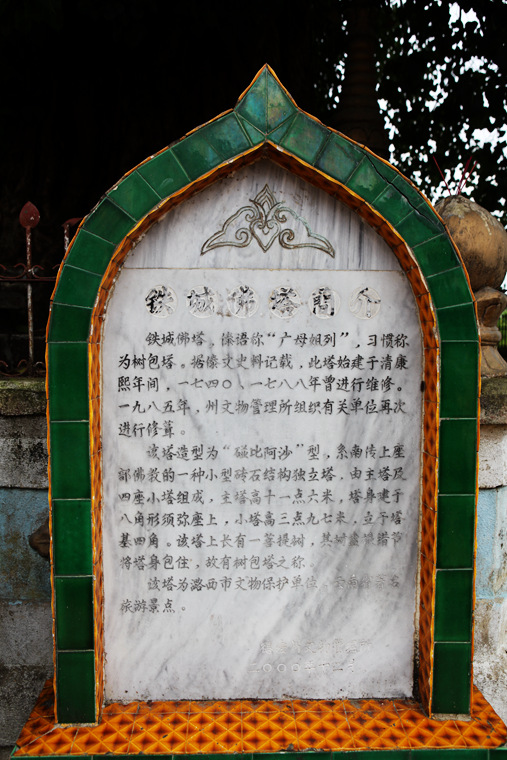 铁城佛塔简介
铁城佛塔，傣语称“广母姐列”，习惯称
为树包塔。据傣文史料记载，此塔始建于清康
熙年间，一七四〇、一七八八年曾进行维修。
一九八五年，州文物管理所组织有关单位再次
进行修葺。
该塔造型为“磁比阿沙”型，系南传上座
部佛教的一种小型砖石结构独立塔，由主塔及
四座小塔组成，主塔高十一点六米，塔身建于
八角形须弥座上，小塔高三点九七米，立于塔
基四角。该塔上长有一菩提树，其树盘根错节
将塔身包住，故有树包塔之称。
该塔为潞西市文物保护单位，云南
旅游景点。
二〇〇〇年